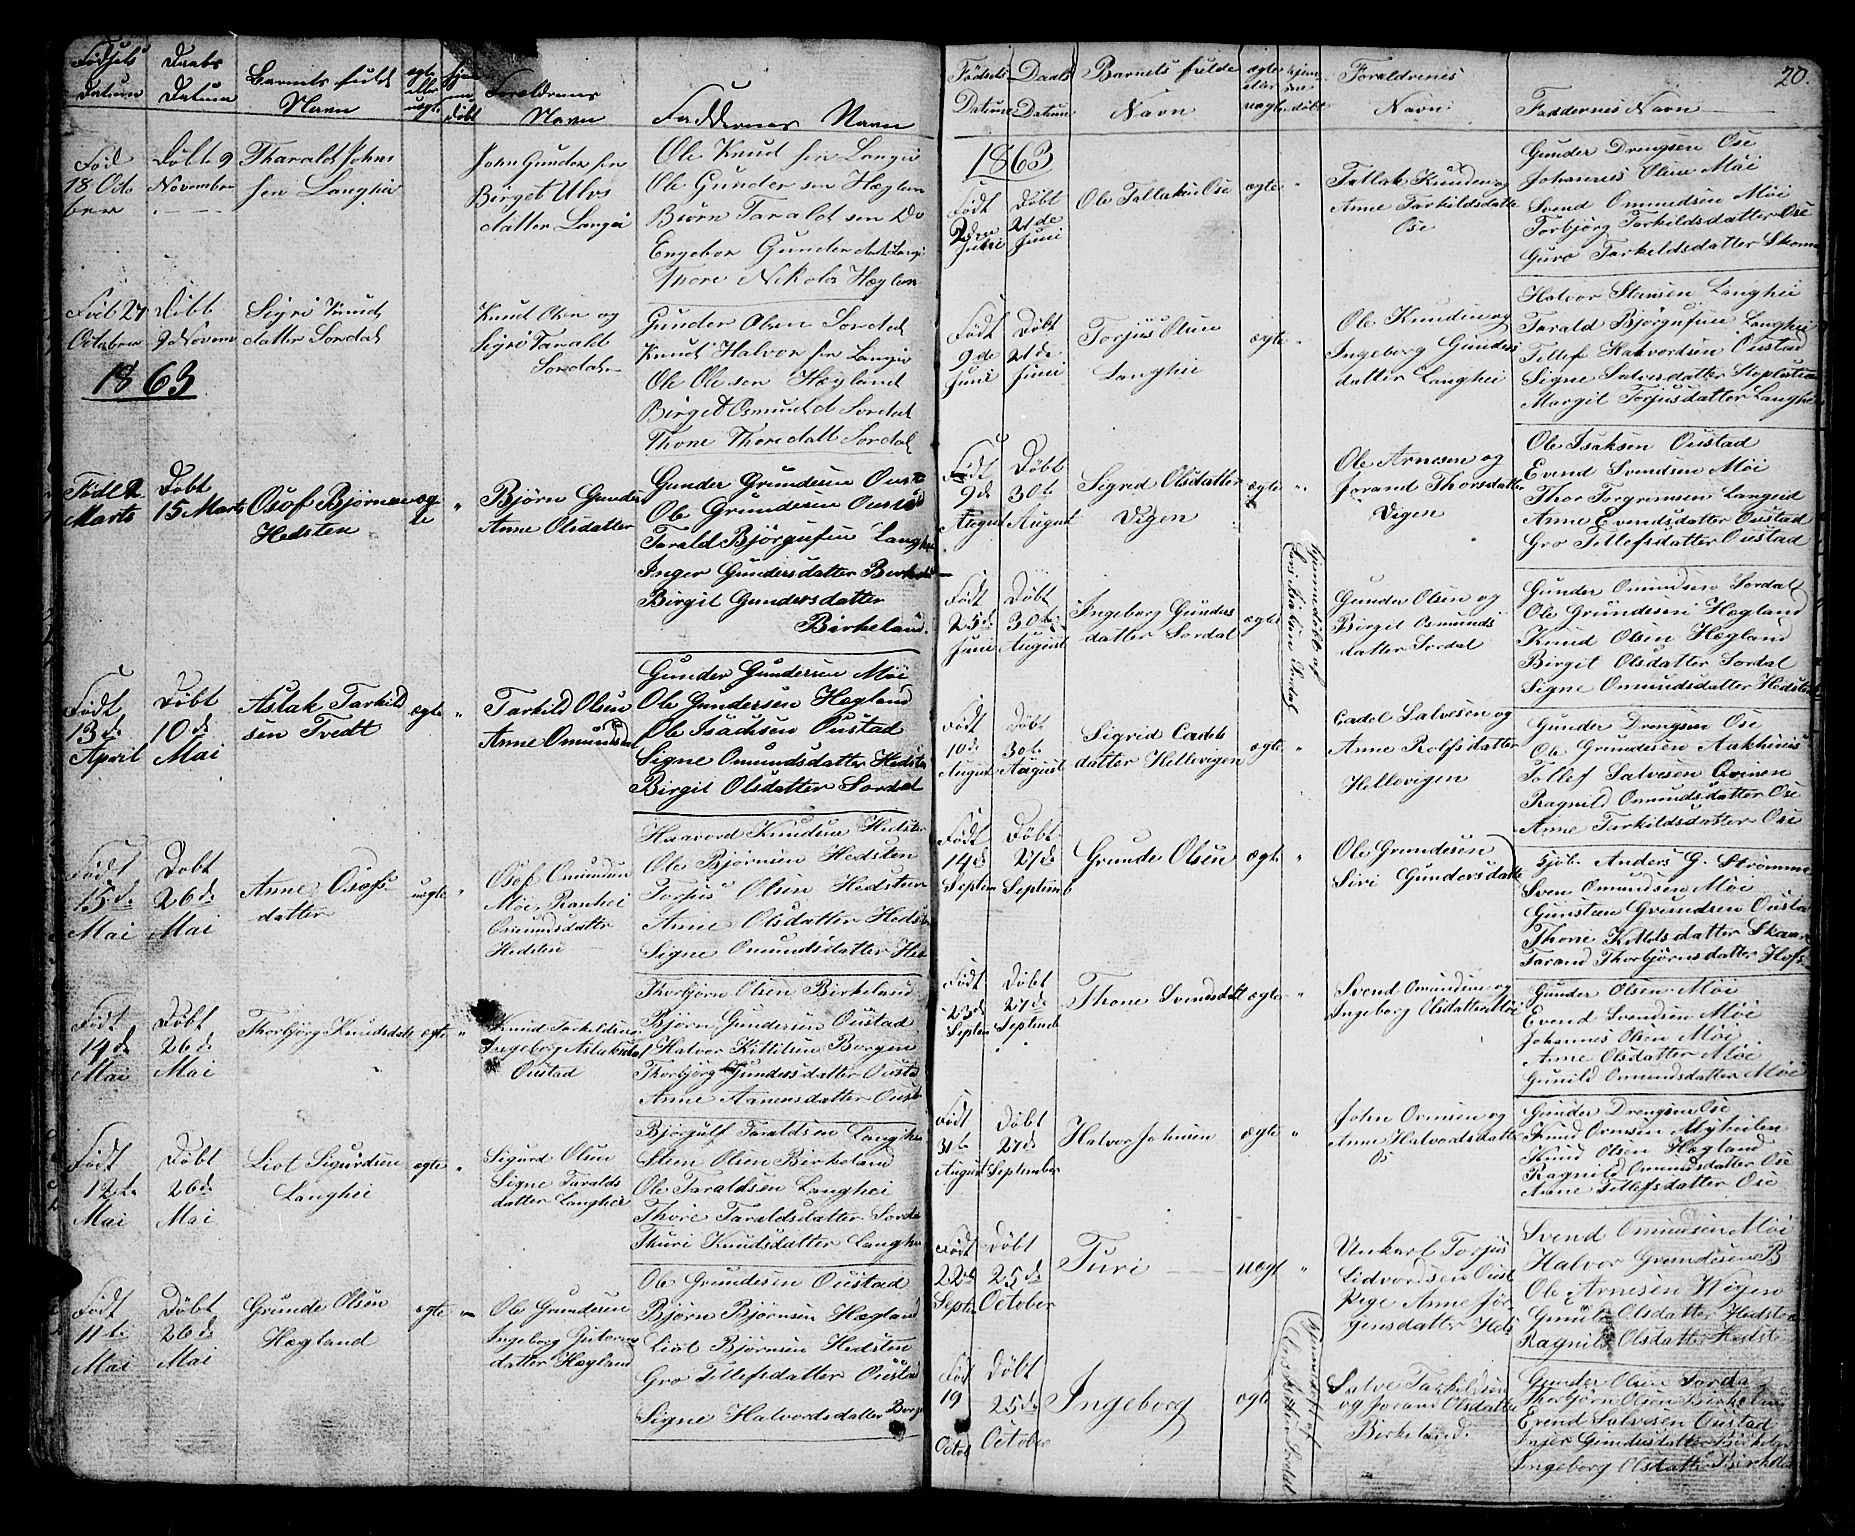 Fødsels Datum
Daabs Datum
Barnets fulde Navn
ægte eller uægte
hjemmedøbt
Forældrenes Navn
Faddernes Navn
Fød 18 October
Døbt 9 November
Tharald Johnssen Langhei
John Gunder sen
Birget Ulvs
datter Langei
Ole Knud sen Langei
Ole Gunder sen Hægland
Biørn Tarald sen Do
Engebor Gunder datt Langi
Thore Nikolai Hægland
Fød 27 October
Døbt 9 November
Sigri Knud
datter Sordal
Knud Olsen og
Sigri Tarald
Sordal
Gunder Olsen Sordal
Knud Halvor sen Langei
Ole Ole sen Hægland
Birget Osmund d Sordal
Thone Thoredatt Sordal
1863
Født 2 Marts
Døbt 15 Marts
Osof Bjørnsen
Hedsten
ægte "
Bjørn Gunders
Anne Olsdatter
Gunder Grundesen Oustad
Ole Grundesen Oustad
Tarald Bjørgufsen Langhei
Inger Gundersdatter Birkeland
Birgit Gundersdatter
Birkeland.
Født 13de April
Døbt 10de Mai
Aslak Tarkild
sen Tvedt
ægte "
Tarkild Olsen
Anne Omundsd
Gunder Gundersen Møi
Ole Gundersen Hægland
Ole Isachsen Oustad
Signe Omundsdatter Hedsten
Birgit Olsdatter Sordal
Født 15de Mai
Døbt 26de Mai
Anne Osofs
datter
uægte "
Osof Omundsen
Møi, Ranhei
Omundsdatter
Hedsten
Haavord Knudsen Hedsten
Ole Bjørnsen Hedsten
Torjus Olsen Hedsten
Anne Olsdatter Hedsten
Signe Omundsdatter Hed
Født 14de Mai
Døbt 26de Mai
Thorbjørg Knudsdatt
ægte "
Knud Tarkildsen
Ingeborg Aslaksdat
Oustad
Thorbjørn Olsen Birkeland
Bjørn Gundersen Oustad
Halvor Kittilsen Bergen
Thorbjørg Gundersdatter Oustad
Anne Aanensdatter Oustad
Født 12te Mai
Døbt 26de Mai
Liot Sigurdsen
Langhei
ægte "
Sigurd Olsen
Signe Taralds
datter Langhei
Bjørgulf Taraldsen Langhei
Sten Olsen Birkeland
Ole Taraldsen Langhei
Thore Taraldsdatter Sordal
Thuri Knudsdatter Langhei
Født 11te Mai
Døbt 26de Mai
Grunde Olsen
Hægland
ægte "
Ole Grundesen
Ingeborg Gutorms
datter Hægland
Ole Grundesen Oustad
Bjørn Bjørnsen Hægland
Liot Bjørnsen Hedsten
Gro Tellefsdatter Oustad
Signe Halvordsdatter Berge
20.
Fødsels Datum
Daabs Datum
Barnets fulde Navn
ægte eller uægte
hjemmedøbt
Forældrenes Navn
Faddernes Navn
1863
Født 2den Juni
Døbt 21de Juni
Ole Tallaksen Ose
ægte "
Tallak Knudsen og
Anne Tarkildsdatte
Ose
Gunder Drengsen Ose
Johannes Olsen Møi
Svend Omundsen Møi
Torbjörg Tarkildsdatter Ose
Guro Tarkeldsdatter Skomedal
Født 9de Juni
Døbt 21de Juni
Torjüs Olsen
Langhei
ægte "
Ole Knudsen og
Ingeborg Gunders
datter Langhei
Halvor Stensen Langhei
Tarald Bjørgufsen Langhei
Tellef Halvordsen Oustad
Signe Salvesdatter
Margit Torjusdatter Langhei
Født 9de August
Døbt 30te August
Sigrid Olsdatter
Vigen
ægte "
Ole Arnesen og
Jorand Thorsdatter
Vigen
Ole Isaksen Oustad
Evend Svendsen Møi
Thor Torgrimsen Langeid
Anne Evendsdatter Oustad
Gro Tellefsdatter Oustad
Født 25de Juni
Døbt 30te August
Ingeborg Gunders
datter Sordal
ægte
hjemmedøbt af
Lars Kristian Sordal
Gunder Olsen og
Birgit Osmunds
datter Sordal
Gunder Omundsen Sordal
Ole Grundesen Hægland
Knud Olsen Hægland
Birgit Olsdatter Sordal
Signe Omundsdatter Hedsten
Født 10de August
Døbt 30te August
Sigrid Cadels
datter Hellevigen
ægte "
Cadel Salvesen og
Anne Rolfsdatter
Hellevigen
Gunder Drengsen Ose
Ole Grundesen Aakhuus
Tollef Salvesen Qvinen
Ragnild Omundsdatter Ose
Anne Tarkildsdatter Ose
Født 14de Septem
Døbt 27de Septemb
Grunde Olsen
ægte "
Ole Grundesen
Siri Gundersdatte
Kjøb. Anders G. Strømme
Sven Omundsen Møi
Gunsten Grundsen Oustad
Thone Kittelsdatter Skaar
Tarand Thorbjørnsdatter Hofs
Født 23de Septem
Døbt 27de Septemb
Thone Svendsdatt
ægte "
Svend Omundsen og
Ingeborg Olsdatter Møi
Gunder Olsen Møi
Evend Svendsen Møi
Johannes Olsen Møi
Anne Olsdatter Møi
Gunild Omundsdatter Møi
Født 31te August
Døbt 27de September
Halvor Johnsen
ægte "
John Ormsen og
Anne Halvordsdatte
Os
Gunder Drengsen Ose
Knud Ormsen Myheilen
Knud Olsen Hægland
Ragnild Omundsdatter Ose
Anne Tellefsdatter Ose
Født 22de Septem
Døbt 25de October
Turi
uægt "
Unkarl Torjus
Lidvordsen Oust
Pige Anne Jør-
gensdatter Heds
Svend Omundsen Møi
Halvor Grundesen B
Ole Arnesen Wigen
Gunild Olsdatter Hedsten
Ragnild Olsdatter Hedste
Fød 19 Octob
Døbt 25de October
Ingeborg
ægte
hjemmedøbt af
Lars Kristian Sordal
Salve Tarkildsen
og Jorand Olsdatte
Birkeland.
Gunder Olsen Sordal
Thorbjørn Olsen Birkeland
Evend Salvesen Oustad
Inger Gundersdatter Birkeland
Ingeborg Olsdatter Birkeland